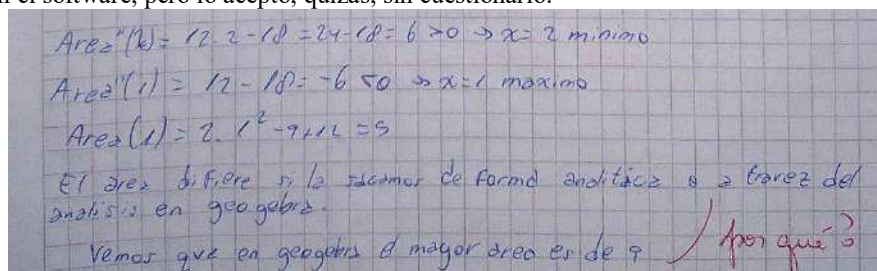 n el software, pero lo aceptó, quizás, sin cuestionarlo.
Area"(2) = 12.2-18 = 24-18 = 6 >0 → x= 2 minimo
Area"(1) = 12-18 = -6 <0 → x=1 maximo
Area(1) = 2.1²-9+12 =5
El area difiere si la sacamos de forma analitica o a travez del
analisis en geogebra.
Vemos que en geogebra el mayor area es de 9
por qué?